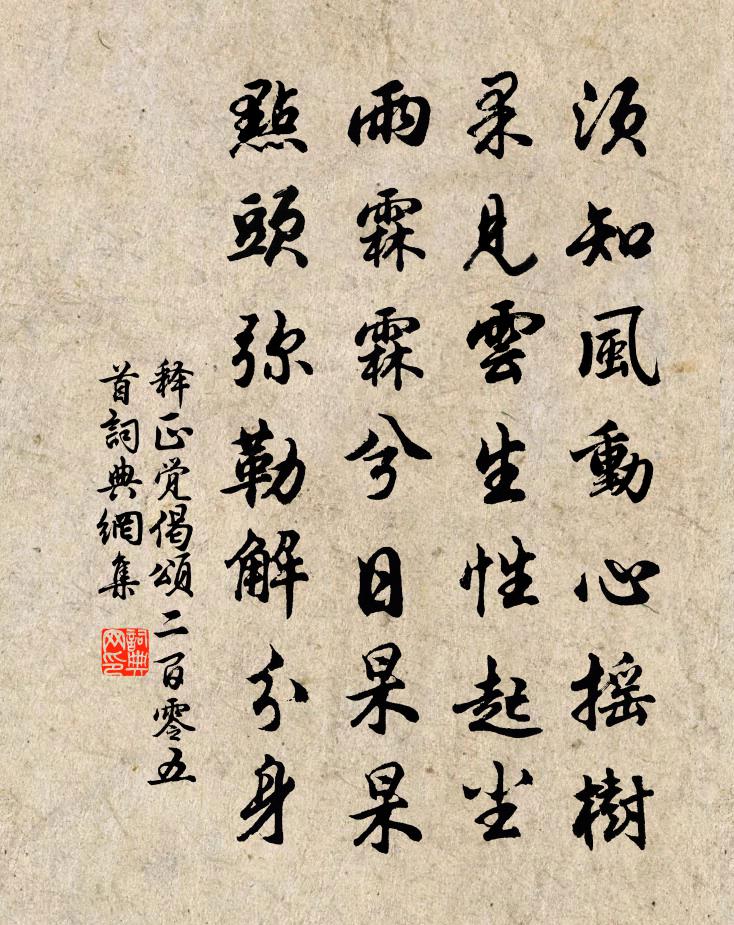 須知風動心摇樹
果見雲生性起尘
雨霖霖兮日杲杲
點頭弥勒解分身
释正觉偈頌二百零五
首詞典網集
詞典
网印